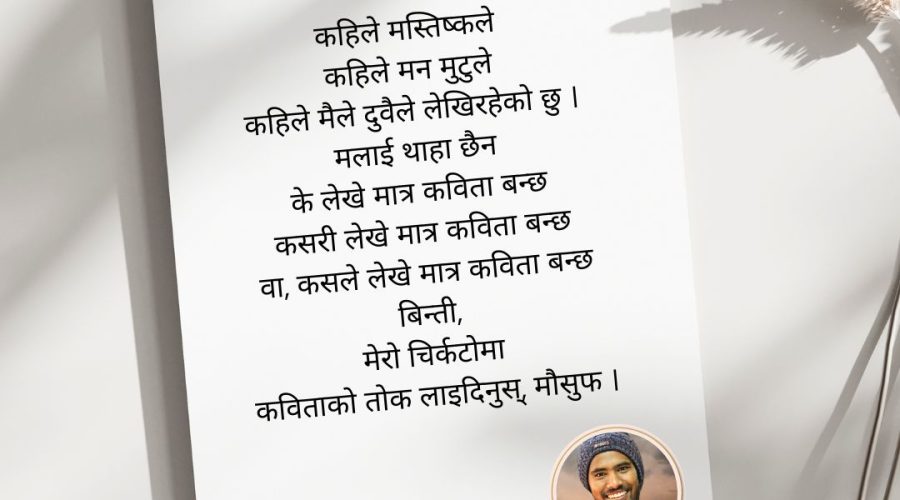 कहिले मस्तिष्कले
कहिले मन मुटुले
कहिले मैले दुवैले लेखिरहेको छु ।
मलाई थाहा छैन
के लेखे मात्र कविता बन्छ
कसरी लेखे मात्र कविता बन्छ
वा, कसले लेखे मात्र कविता बन्छ
बिन्ती,
मेरो चिर्कटोमा
कविताको तोक लाइदिनुस्, मौसुफ ।